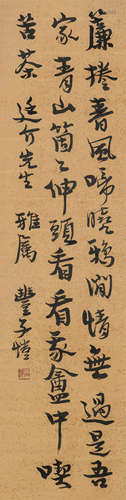 簾捲春風啼曉鴉閒情無過是吾
家青山箇々伸頭看看我盦中喫
苦茶 廷介先生 雅屬 豐子愷